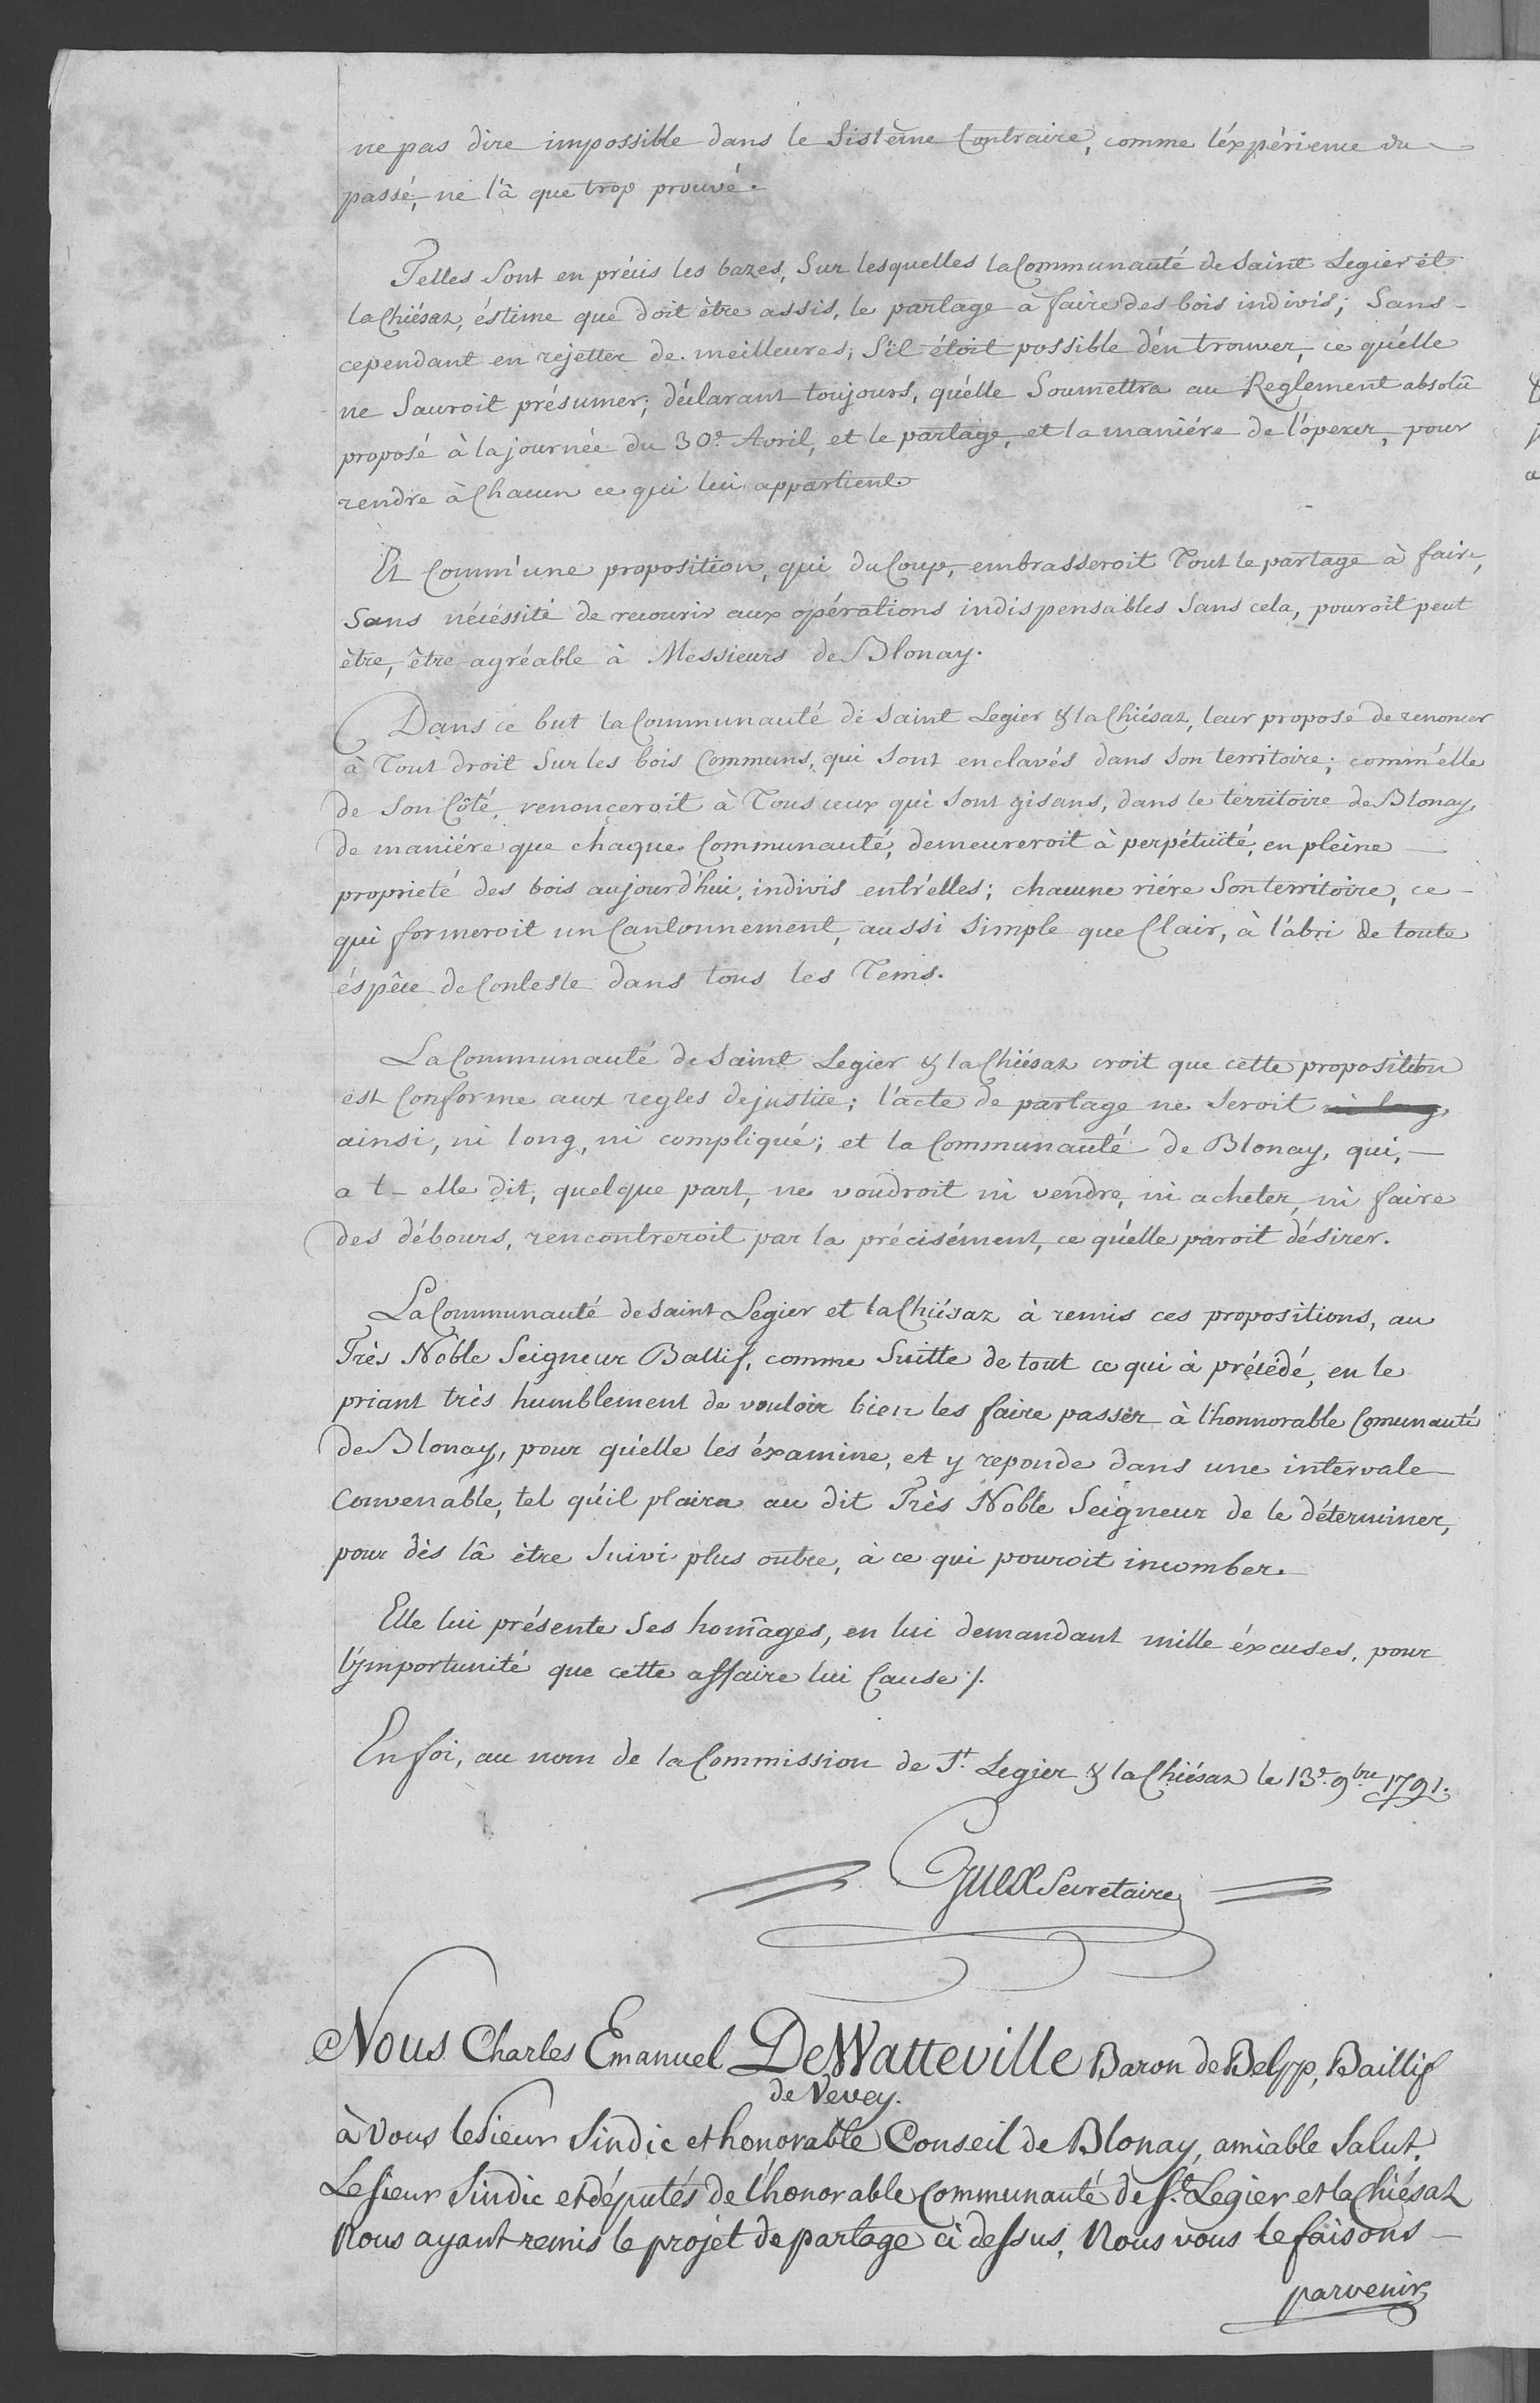 ne pas dire impossible dans le Sistême Contraire, comme l'éxpérience du
passé, ne l'â que trop prouvé.
Telles Sont en précis les bazes, Sur lesquelles la Communauté de Saint Legier et
la Chiésaz, éstime que doit être assis, le partage à faire des bois indivis; Sans
cependant en rejetter de meilleures; S'il étoit possible d'én trouver, ce qu'élle
ne Sauroit présumer; déclarant toujours, qu'élle Soumettra au Reglement absolû
proposé à la journée du 30e. Avril, et le partage, et la maniére de l'óperer, pour
rendre à Chacun ce qui lui appartient.
Et Comm'une proposition, qui du Coup, embrasseroit Tout le partage à faire,
Sans nécéssité de recourir aux opérations indispensables Sans cela, pouroît peut
être, être agréable à Messieurs de Blonay.
Dans ce but la Communauté de Saint Legier & la Chiésaz, leur propose de renoncer
à Tout droit Sur les bois Communs, qui Sont enclavés dans Son territoire; comm'élle
de Son Côté, renonçeroit à Tous ceux qui Sont gisans, dans le territoire de Blonay,
de maniére que chaque Communauté, demeureroit à perpétuïté, en pleine
proprieté des bois aujourd'hui, indivis entr'elles; chacune riére Son territoire, ce
qui formeroit un Cantonnement, aussi Simple que Clair, à l'abri de toute
éspêce de Conteste dans tous les Tems.
La Communauté de Saint Legier & la Chiésaz croit que cette proposition
est Conforme aux regles de justice; l'acte de partage ne Seroit ni long,
ainsi, ni long, ni compliqué; et la Communauté de Blonay, qui,
a t-elle dit, quelque part, ne voudroit ni vendre, ni acheter, ni faire
des débours, rencontreroit par la précisément, ce qu'élle paroit désirer.
La Communauté de Saint Legier et la Chiésaz à remis ces propositions, au
Très Noble Seigneur Ballif, comme Suitte de tout ce qui à précédé, en le
priant très humblement de vouloir bien les faire passer à l'honnorable Comunauté
de Blonay, pour qu'elle les éxamine, et y reponde dans une intervale
Convenable, tel qu'il plaira au dit Très Noble Seigneur de le déterminer,
pour dès lâ être Suivi plus outre, à ce qui pouroit incomber.
Elle lui présente Ses hom̃ages, en lui demandant mille éxcuses, pour
l'ymportunité que cette affaire lui Cause /.
En foi, au nom de la Commission de St. Legier & la Chiésaz le 13e. 9bre 1791.
Guex Secretaire
Nous Charles Emanuel De Watteville Baron de Belpp, Baillif
de Vevey.
à Vous le Sieur Sindic et honorable Conseil de Blonay, amiable Salut.
Le Sieur Sindic et députés de l'honorable Communauté de St. Legier et la Chiésaz
Nous ayant remis le projet de partage ci dessus, Nous vous le faisons
parvenir,